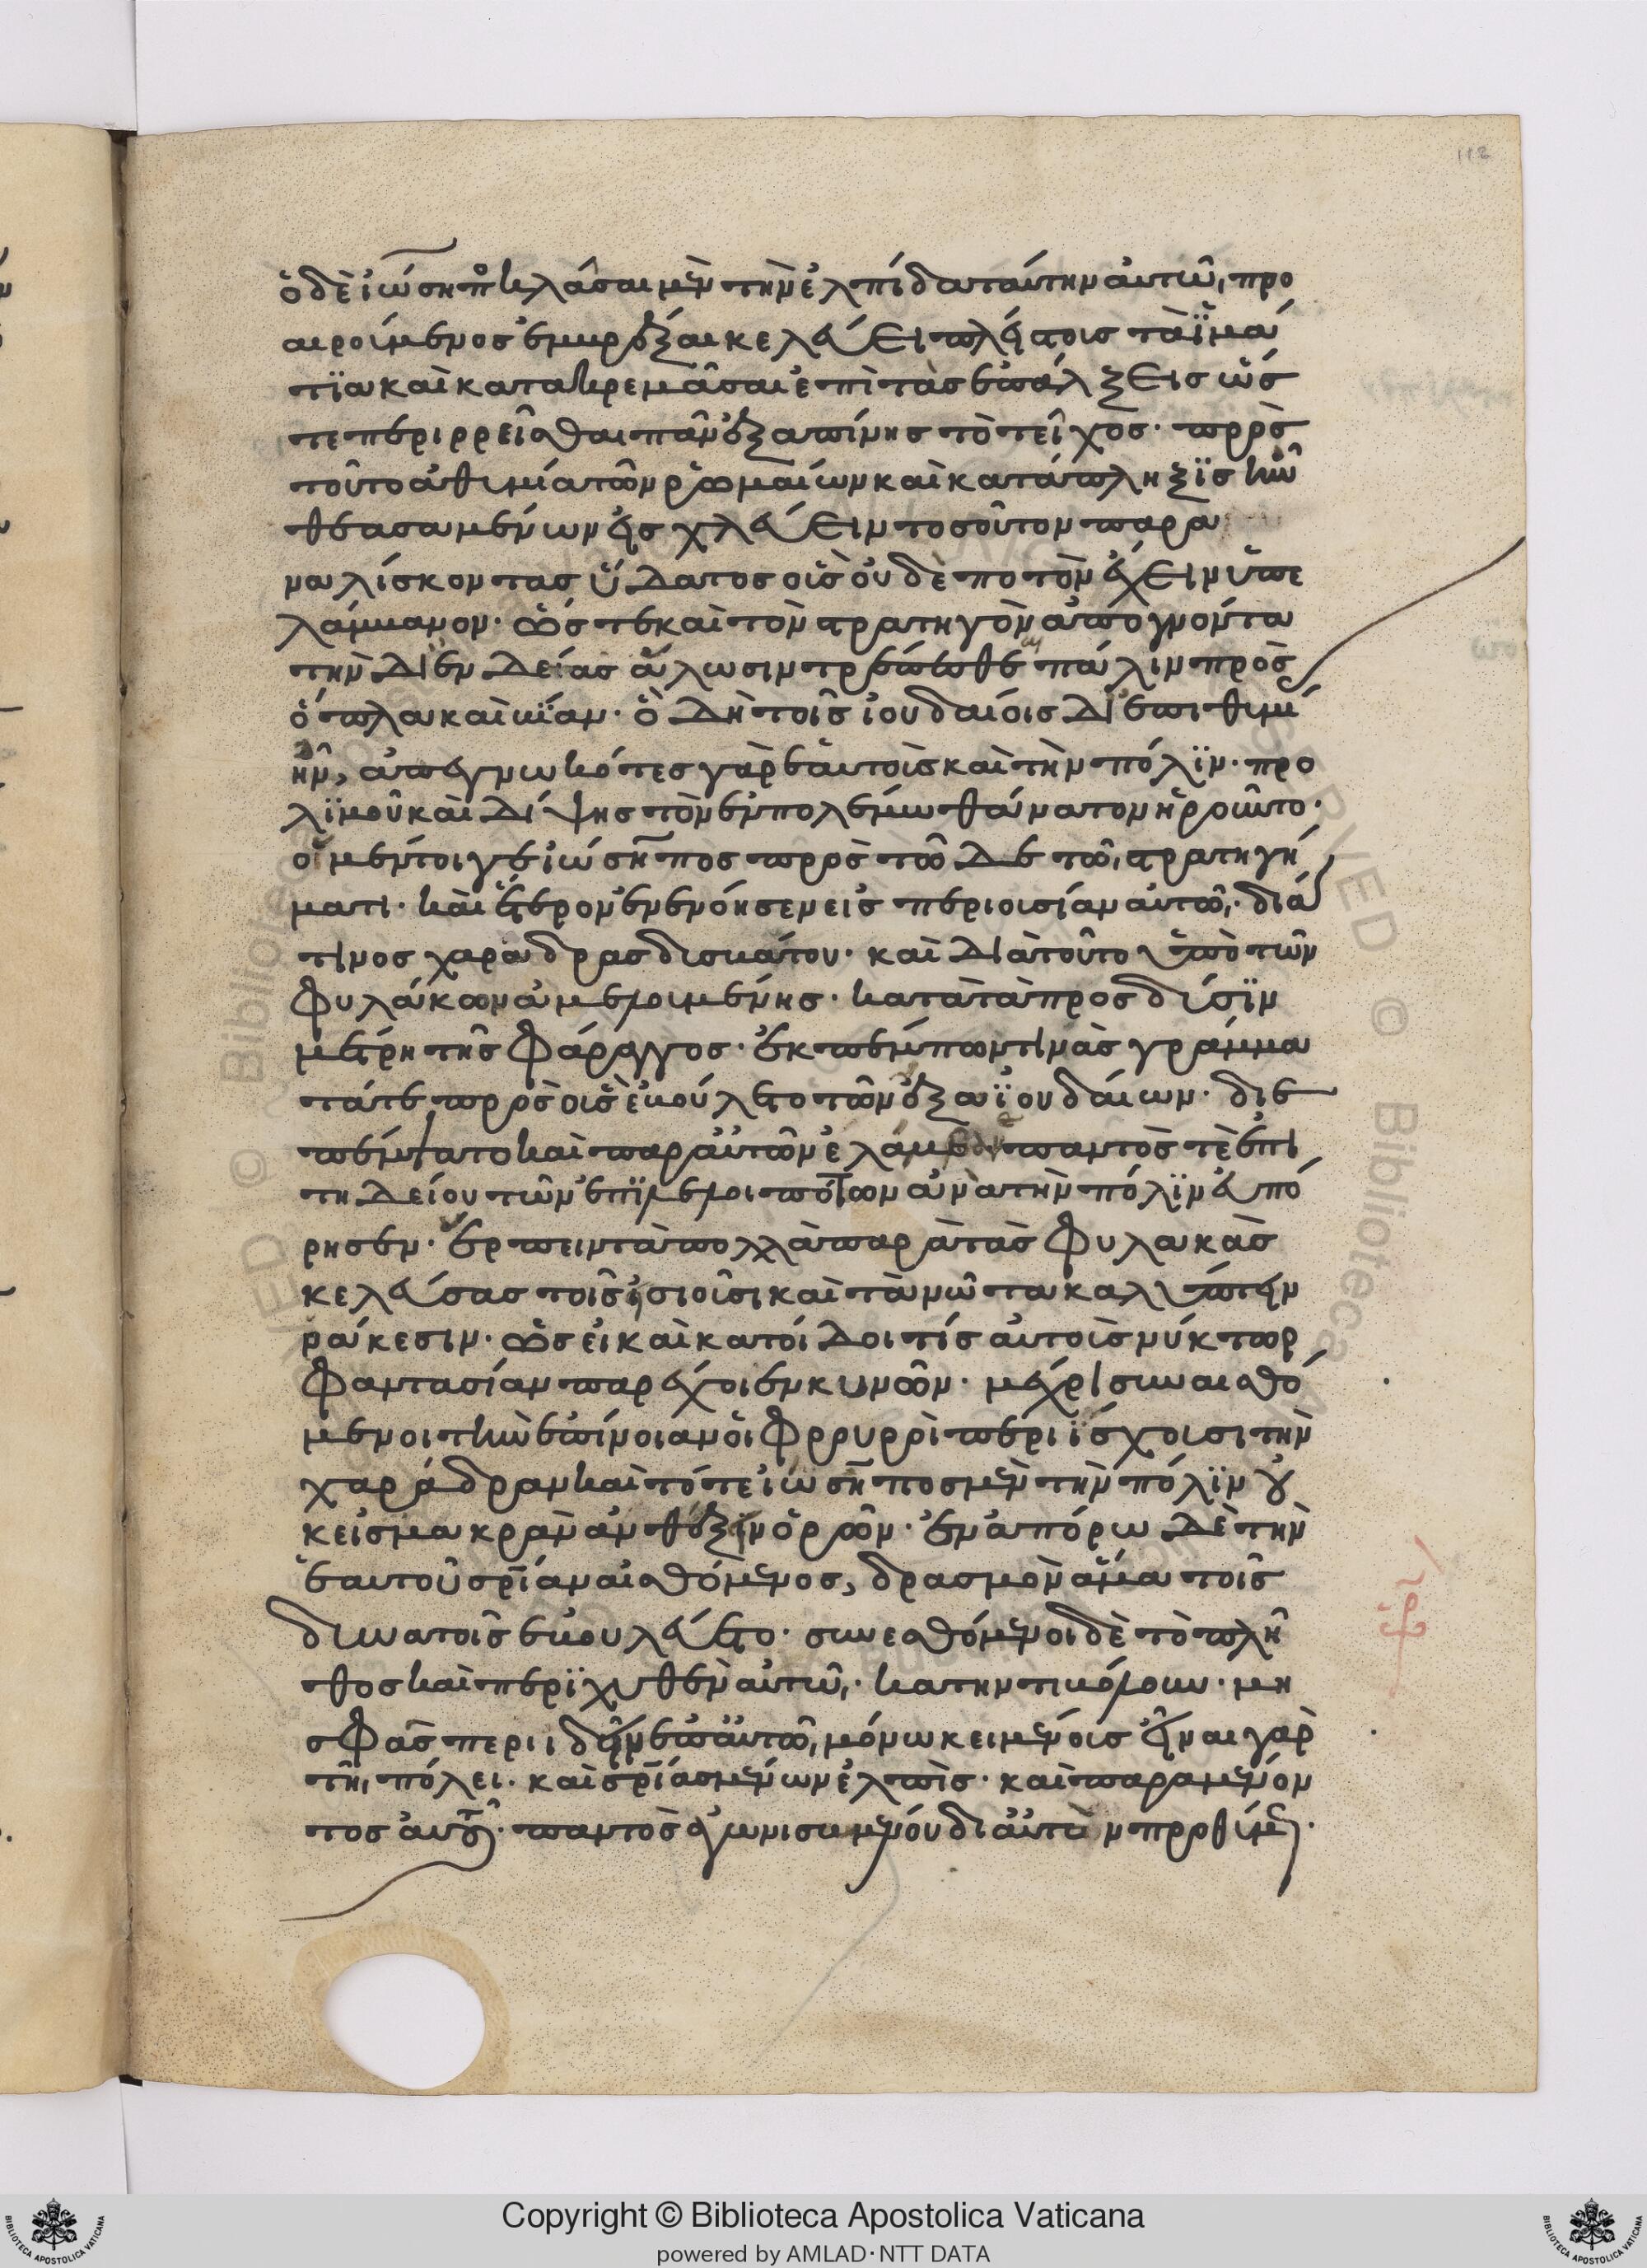 112
ὁ δὲ ἰώσηπος κλᾶσαι μὲν τὴν ἐλπίδα ταύτην αὐτῶ, προ
αιρούμενος ἐμβρέξαι κελεύει πλείστοις τὰ ἱμά
τια καὶ κατακρεμᾶσαι ἐπὶ τὰς ἐπάλξεις ὥς
τε περιρρεῖσθαι πᾶν ἐξαπίνης τὸ τεῖχος· πρὸς
τοῦτο ἀθυμία τῶν ῥωμαίων καὶ κατάπληξις ἦν
θεασαμένων εἰς χλεύειν τοσοῦτον παρα
ναλίσκοντας ὕδατος οἷς οὐδὲ ποτὸν ἔχειν ὑπε
λάμβανον· ὥς τε καὶ τὸν στρατηγὸν ἀπογνόντα
τὴν δι' ἐνδείας ἅλωσιν τρέπεσθαι πάλιν πρὸς
ὅπλα καὶ βίαν· ὃ δὴ τοῖς ἰουδαίοις δι' ἐπιθυμί
ην, ἀπεγνωκότες γὰρ ἑαυτοὺς καὶ τὴν πόλιν· πρὸ
λιμοῦ καὶ δίψης τὸν ἐν πολέμω θάνατον ἡροῦντο·
ὁ μέντοι γε ἰώσηπος πρὸς τῶ δε τῶ, στρατηγή
ματι· καὶ ἕτερον ἐνενόησεν εἰς περιουσίαν αὐτῶ,· διά
τινος χαράδρας δυσβάτου· καὶ διὰ τοῦτο ὑπὸ τῶν
φυλάκων ἀμελουμένης· κατὰ τὰ πρὸς δύσιν
μέρη τῆς φάραγγος· ἐκπέμπων τινὰς γράμμα
τά τε πρὸς οὓς ἐβούλετο τῶν ἔξω ἰουδαίων· διε
πέμψατο καὶ παρ' αὐτῶν ἐλάμβανε παντὸς τε ἐπι
τηδείου τῶν ἐπιλελοιπότων ἀνὰ τὴν πόλιν εὐπό
ρησεν· ἕρπειν τὰ πολλὰ παρὰ τὰς φυλακὰς
κελεύσας τοῖς ἐξιοῦσι καὶ τὰ νῶτα καλύπτειν
ράκεσιν· ὡς εἰ καὶ κατίδοι τίς αὐτοὺς νύκτωρ
φαντασίαν παρέχοιεν κυνῶν· μέχρι συναισθό
μενοι τὴν ἐπίνοιαν οἱ φρουροὶ περιίσχουσι τὴν
χαράδραν καὶ τότε ἰώσηπος μὲν τὴν πόλιν οὐ
κ εἰς μακρὰν ἀνθέξειν ὁρῶν· ἐν ἀπόρω δὲ τὴν
ἑαυτοῦ σρίαν αἰσθόμενος, δρασμὸν ἅμα τοῖς
δυνατοῖς ἐβουλεύετο· συνεσθόμενοι δὲ τὸ πλῆ
θος καὶ περιχυθὲν αὐτῶ,· κατηντιβόλουν· μὴ
σφᾶς περιιδεῖν ἐπ' αὐτῶ, μόνω κειμένοις εἶναι γὰρ
τῆ, πόλει· καὶ σρίας μένων ἐλπὶς· καὶ παραμένον
τος αὐτοῦ· παντὸς ἀγωνισαμένου δι' αὐτὸν προθύμως·
Copyright © Biblioteca Apostolica Vaticana
powered by AMLAD·NTT DATA